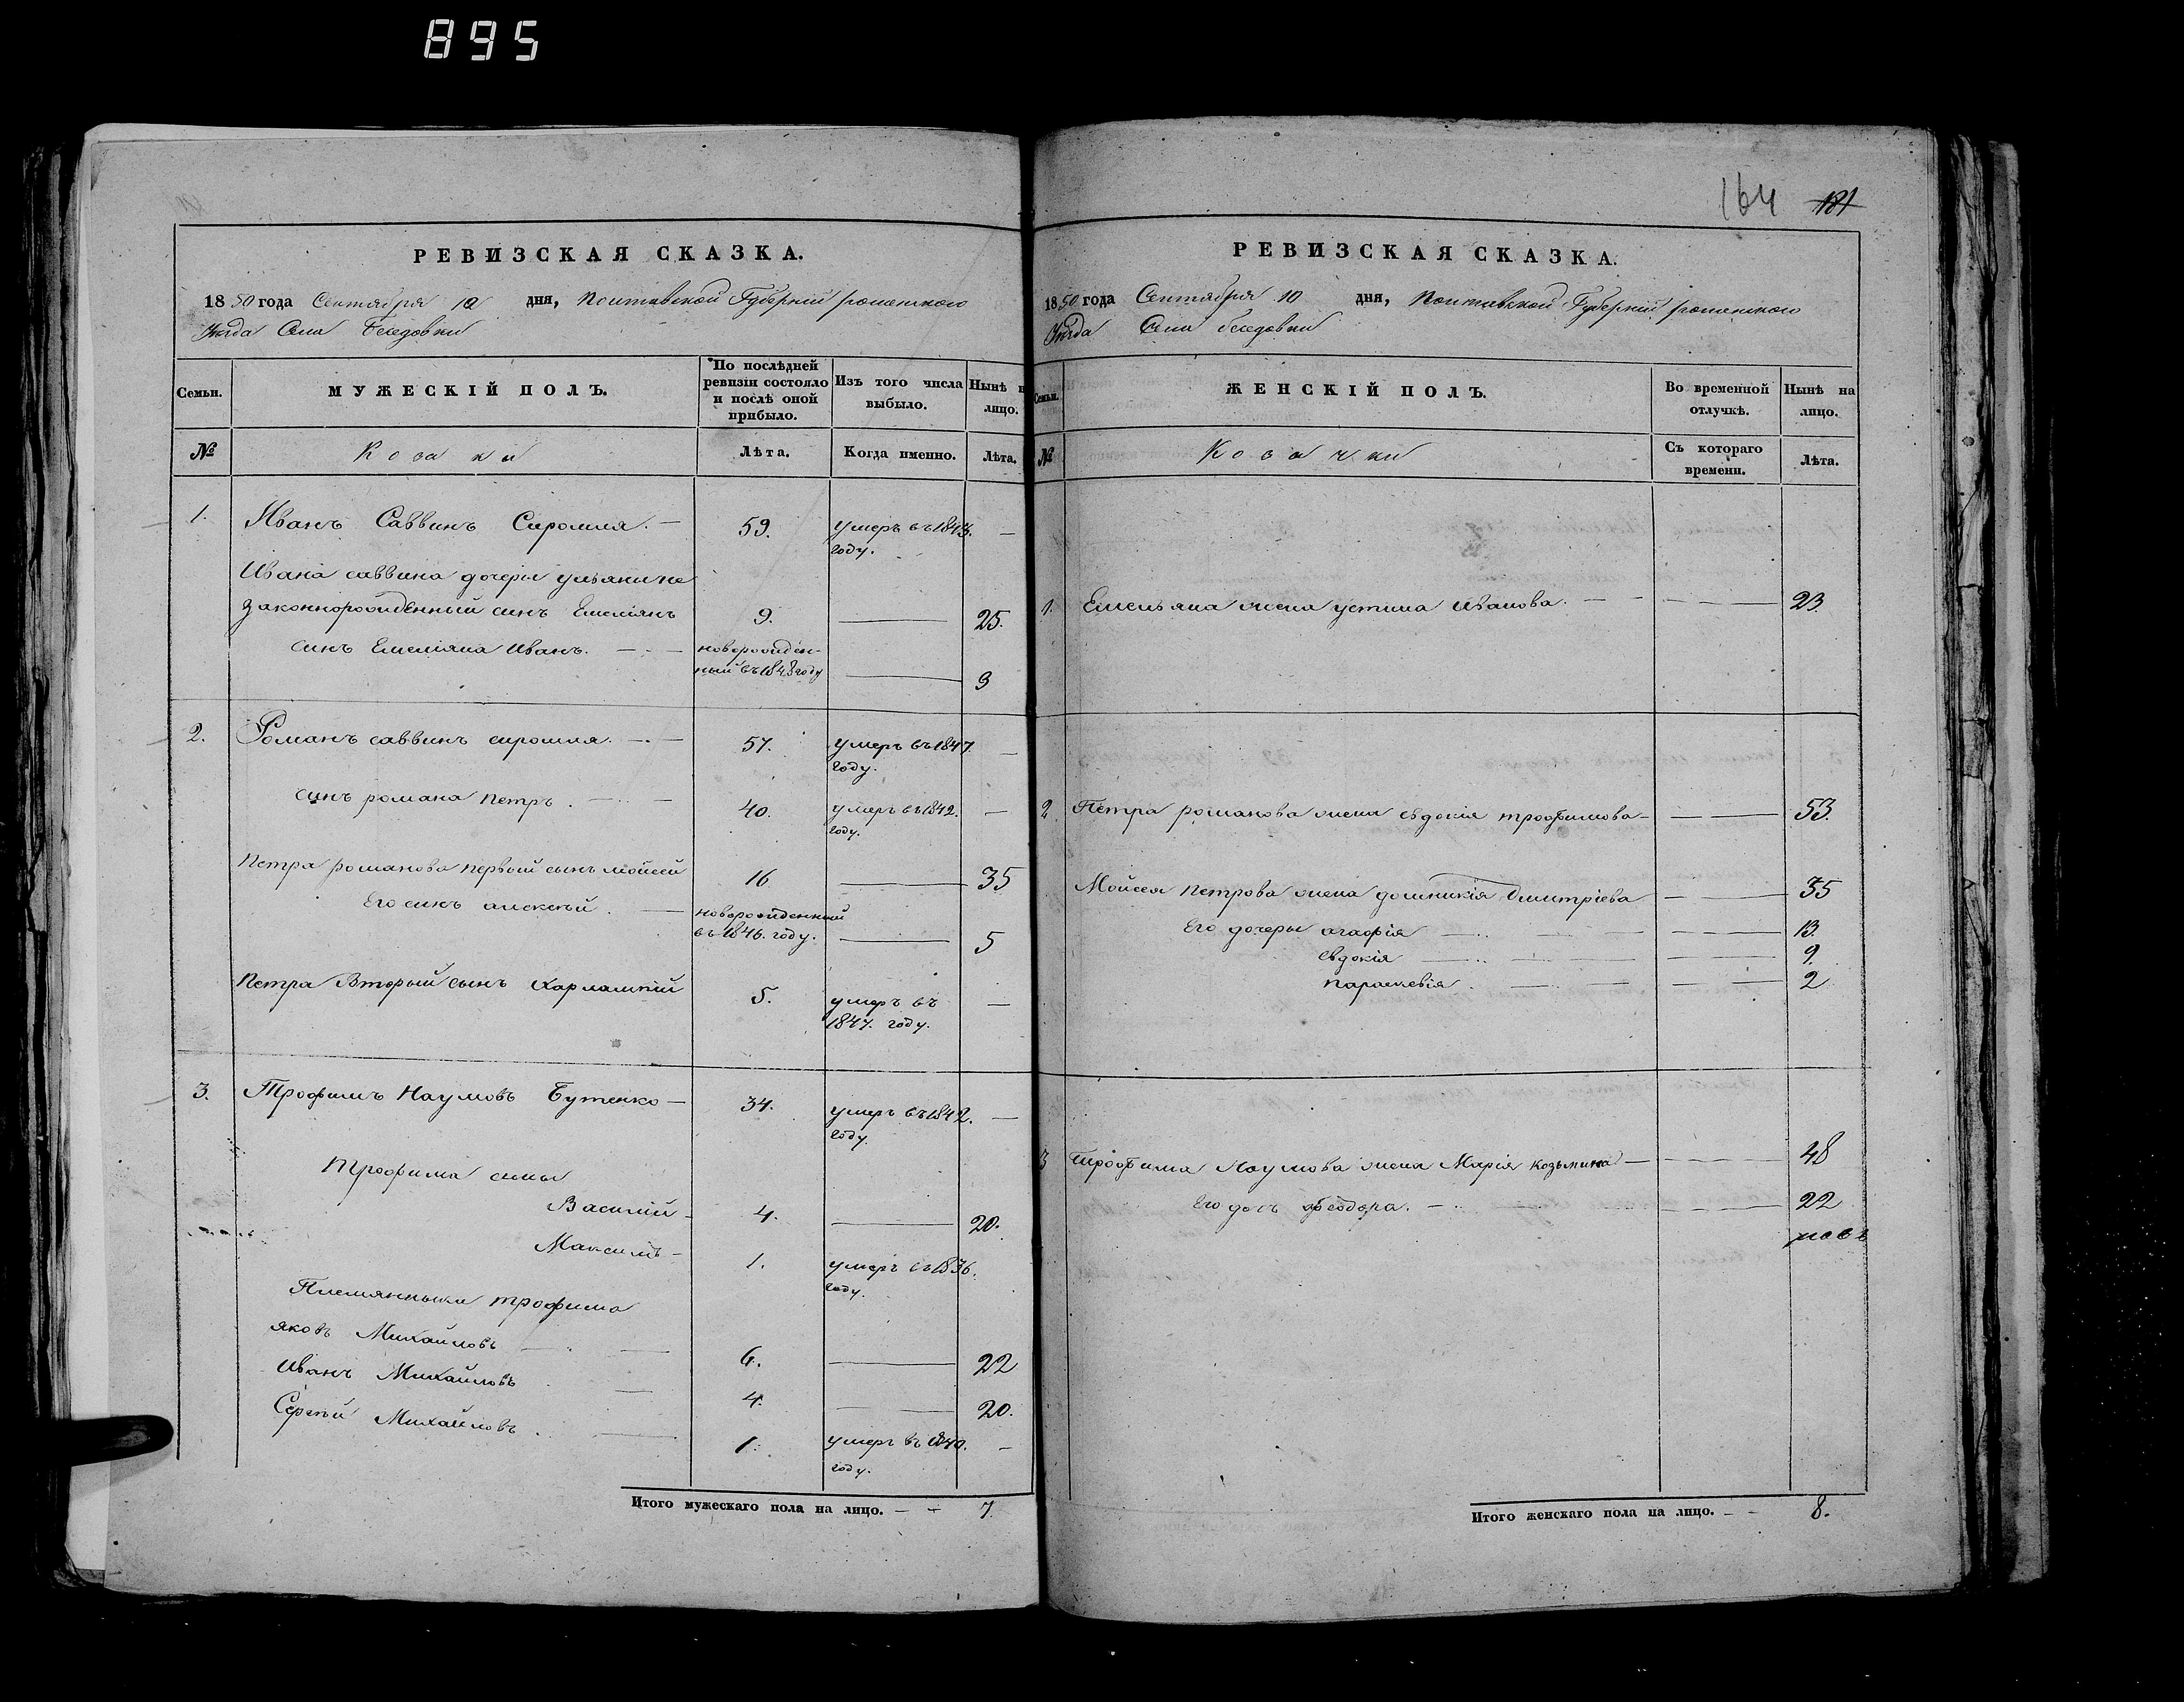 895
РЕВИЗСКАЯ СКАЗКА.
1850 года Сентября 10 дня, Полтавской Губерніи роменского
Уезда Села Беседовки
Семьи.
МУЖЕСКІЙ ПОЛЪ.
По послѣдней ревизіи состояло и послѣ оной прибыло.
Изъ того числа выбыло.
Нынѣ н лицо.
№
Козаки
Лѣта.
Когда именно.
Лѣта.
1. Иванъ Саввинъ Сиромля. — 59. умеръ въ 1843. —
году.
Ивана саввина дочеры ульяны не
законнорожденный синъ Емеліянъ 9. — 25.
синъ Емеліяна Иванъ. — новорожден-
ный въ 1848 году — 3
2. Романъ саввинъ сиромля. — 57. умеръ въ 1847 —
году.
синъ романа Петръ. — 40. умеръ въ 1842. —
году.
Петра романова первый сынъ мойсей 16 — 35
Его синъ алексѣй. — новорожденный
въ 1846. году. — 5
Петра Вторый сынъ Харлампий 5. умеръ въ —
1847. году.
3. Трофимъ Наумовъ Бутенко — 34. умеръ въ 1842. —
году.
Трофима сины
Василий — 4. — 20.
Максимъ — 1. умеръ въ 1836.
году.
Племянныки трофима
яковъ Михайловъ — 6. — 22
Иванъ Михайловъ — 4. — 20.
Сергѣй Михайловъ. — 1. умеръ въ 1840. —
году.
Итого мужескаго пола на лицо. — — 7.
164 181
РЕВИЗСКАЯ СКАЗКА.
1850 года Сентября 10 дня, Полтавской Губерніи роменского
Уезда Села беседовки
Семьи.
ЖЕНСКІЙ ПОЛЪ.
Во временной отлучкѣ.
Нынѣ на лицо.
№
Козачки
Съ котораго времени.
Лѣта.
1. Емельяна жена устина иванова. — 23.
2. Петра романова жена евдокія трофимова — 53.
Мойсея Петрова жена домникія дмитріева — 35
Его дочеры агафія — 13.
евдокія — 9.
параскевія. — 2
3 трофима Наумова жена Марія козьмина — 48
Его дочь феодора. — 22
Итого женскаго пола на лицо. — — 8.